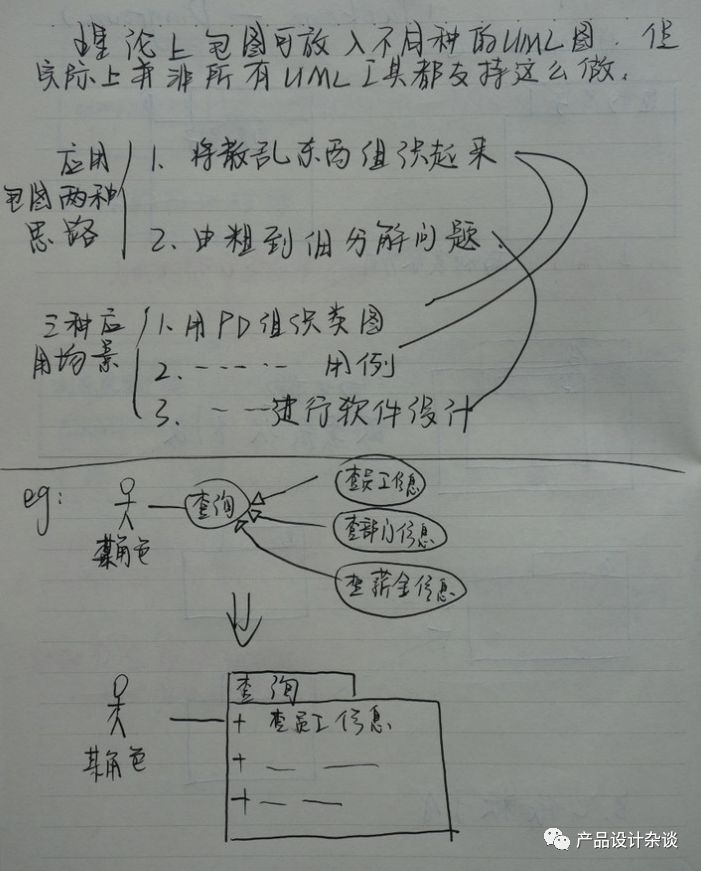 理论上包图可放入不同种的UML图，但
实际上并非所有UML工具都支持这么做。
应用
包图两种
思路
1. 将散乱东西组织起来
2. 由粗到细分解问题、
三种应
用场景
1. 用PD组织类图
2. ---- 用例
3. --进行软件设计
eg:
某角色
查询
查员工信息
查部门信息
查薪金信息
某角色
查询
+ 查员工信息
+ — —
+ — —
产品设计杂谈